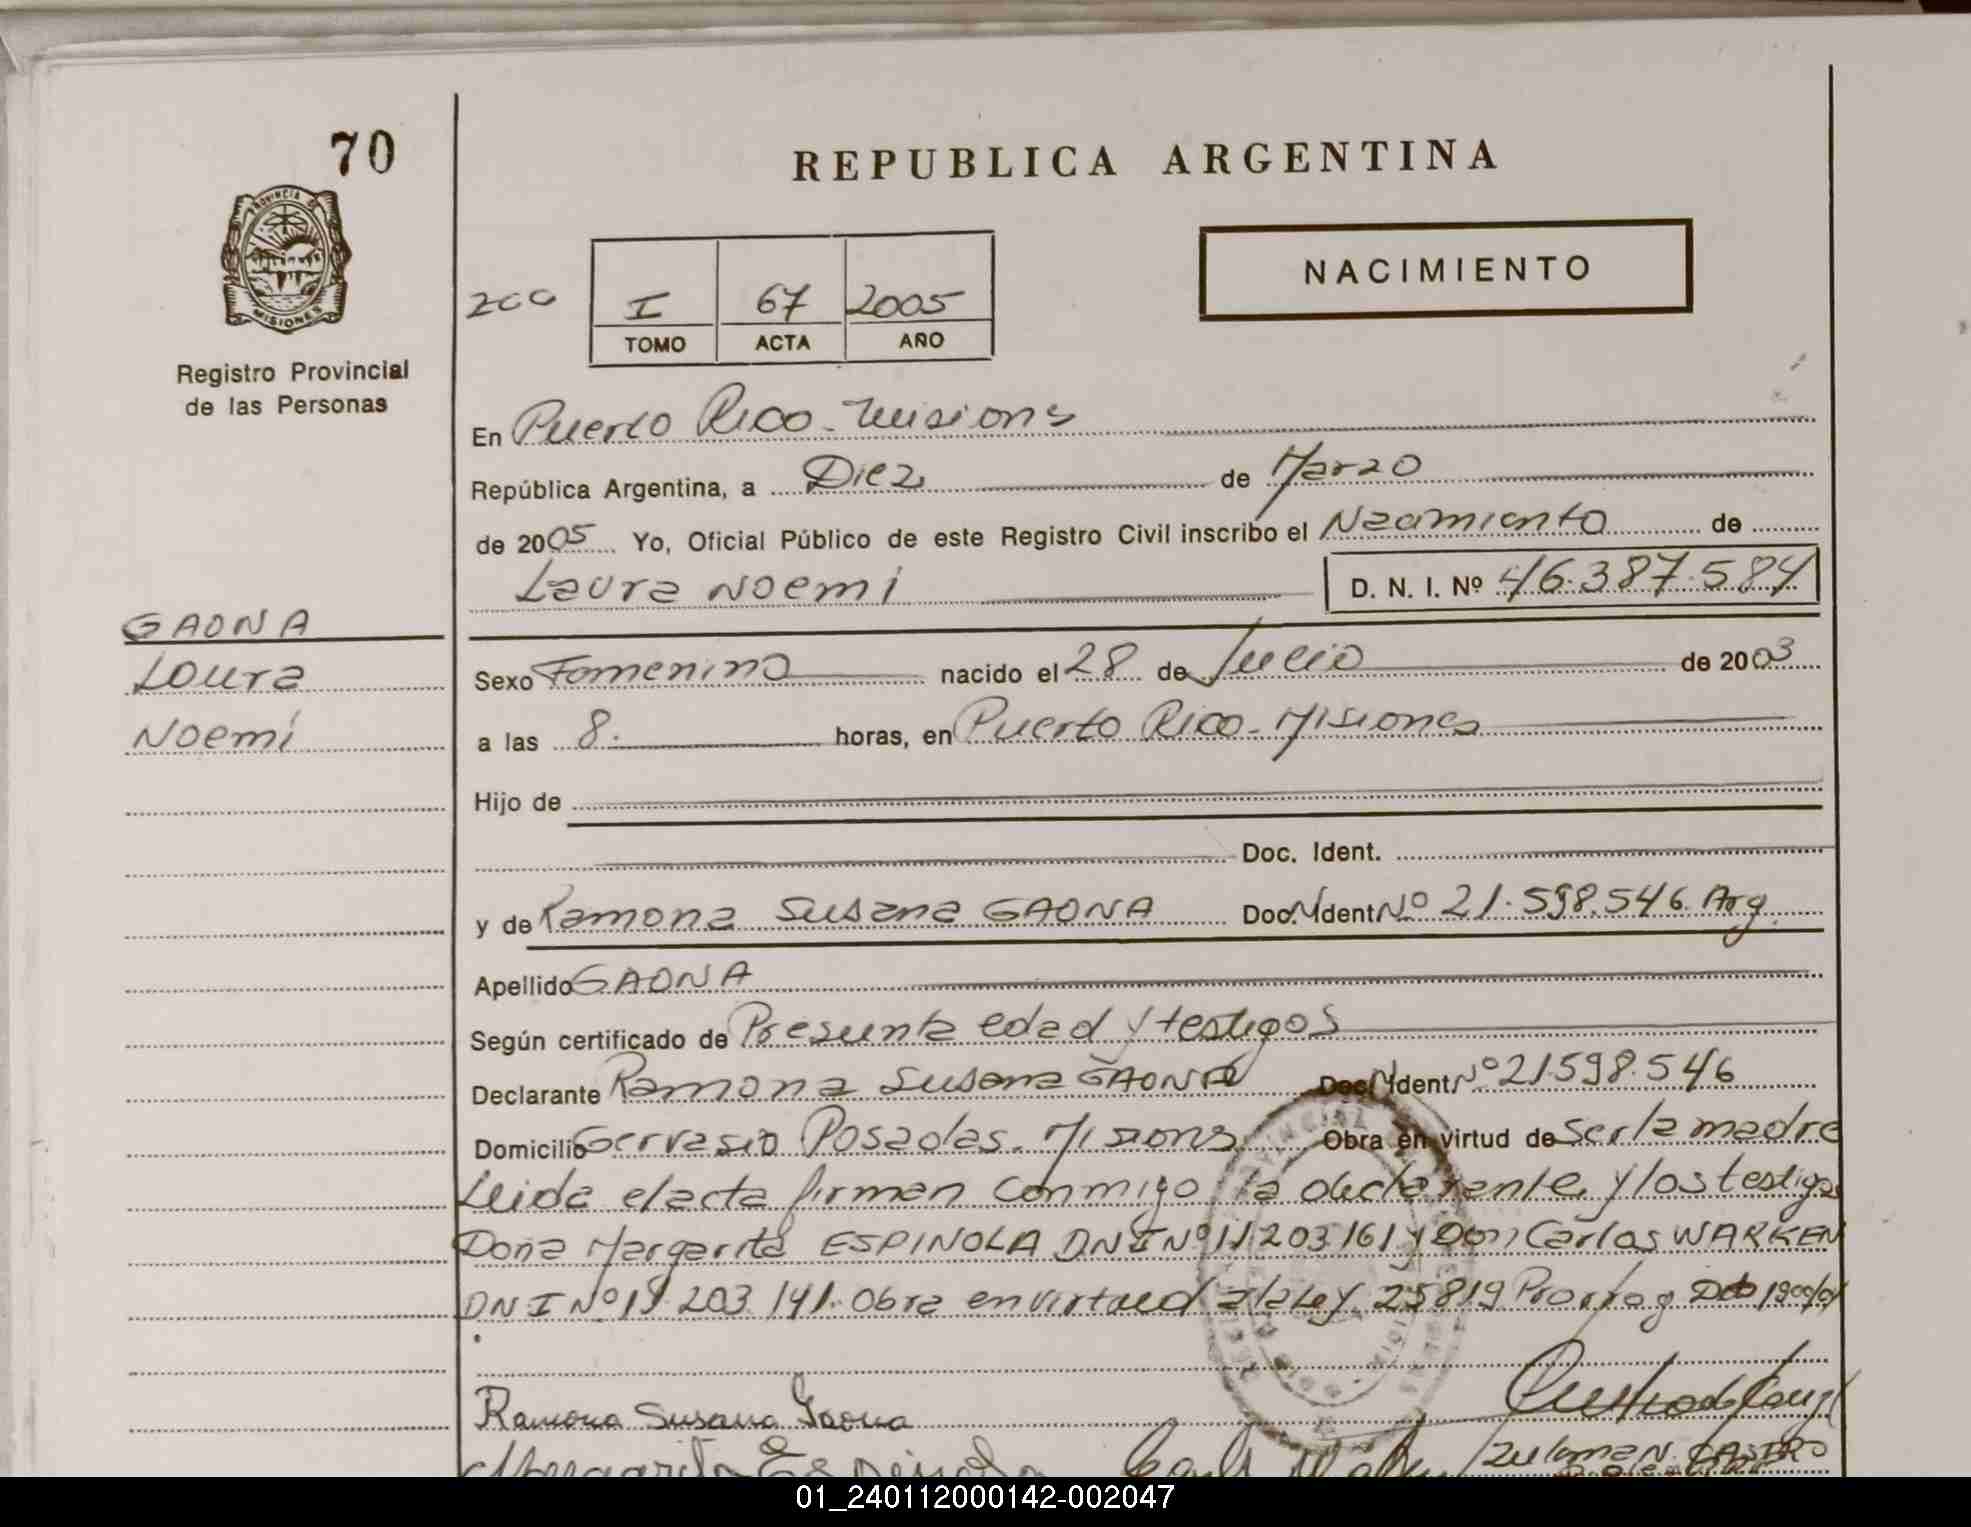 70
REPUBLICA ARGENTINA
PROVINCIA DE
MISIONES
Registro Provincial
de las Personas
NACIMIENTO
200 I 67 2005
TOMO ACTA AÑO
En Puerto Rico - Misiones
República Argentina, a Diez de Marzo
de 2005 Yo, Oficial Público de este Registro Civil inscribo el Nacimiento de
Laura Noemí D. N. I. Nº 46.387.584
GAONA
Laura
Noemí
Sexo Femenino nacido el 28 de Julio de 2003
a las 8. horas, en Puerto Rico - Misiones
Hijo de
Doc. Ident.
y de Ramona Susana GAONA Doc. Ident Nº 21.598.546 Arg.
Apellido GAONA
Según certificado de Presunta edad y testigos
Declarante Ramona Susana GAONA Doc. Ident Nº 21.598.546
Domicilio Gervasio Posadas. Misiones Obra en virtud de ser la madre
Leida el acta firman conmigo la declarante y los testigos
Doña Margarita ESPINOLA DNI Nº 11 203 161 y Don Carlos WARKEN
DNI Nº 203 141. Obra en virtud a la Ley 25819 Prorrog Dto
Ramona Susana Gaona
Margarita Espinola
Zulema N. CASTRO
01_240112000142-002047